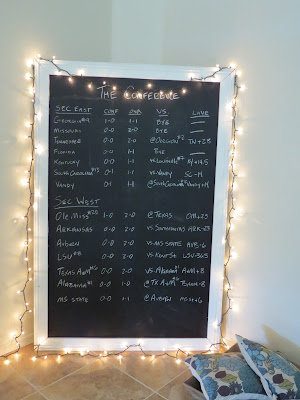 The Conference
SEC East CONF OVR VS LINE
Georgia #9 1-0 1-1 BYE
Missouri 0-0 2-0 BYE
Tennessee 0-0 2-0 @Oregon #2 TN+28
Florida 0-0
Kentucky 0-0 1-1 vs Louisville #7
South Carolina #13 0-1 1-1 vs Vandy SC
Vandy 0-1 1-1 @South Carolina
SEC West
Ole Miss #25 1-0 2-0 @Texas
Arkansas 0-0 2-0 vs ARK-23
Auburn 0-0 2-0 vs MS State AUB-6
LSU #8 0-0 2-0 vs Kent St LSU-36.5
Texas A&M 0-0 2-0 vs Alabama #1 A&M+8
Alabama #1 0-0 1-0 @TX A&M
MS State 0-0 1-1 @Auburn